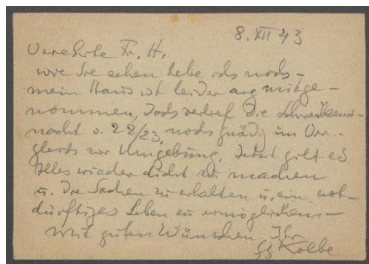 8. XII 43
Verehrte Fr. H.
wie Sie sehen lebe ich noch –
mein Haus ist leider arg mitge-
nommen, doch verlief die Schreckens-
nacht v. 22/23, noch gnädig im Ver-
gleich zur Umgebung. Jetzt gilt es
Alles wieder dicht zu machen
u. die Sachen zu erhalten u. ein not-
dürftiges Leben zu ermöglichen –
mit guten Wünschen Ihr
GKolbe